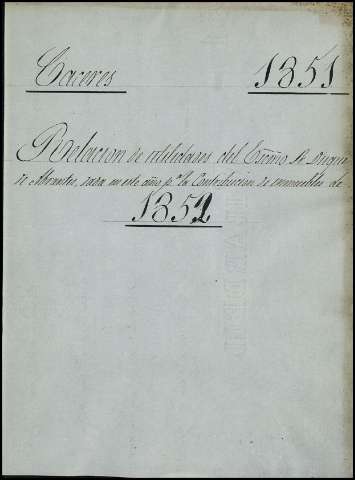 Caceres 1851
Relacion de utilidades del Exćmo Sr Duque
de Abrantes, dada en este año pª la Contribucion de inmuebles de
1852